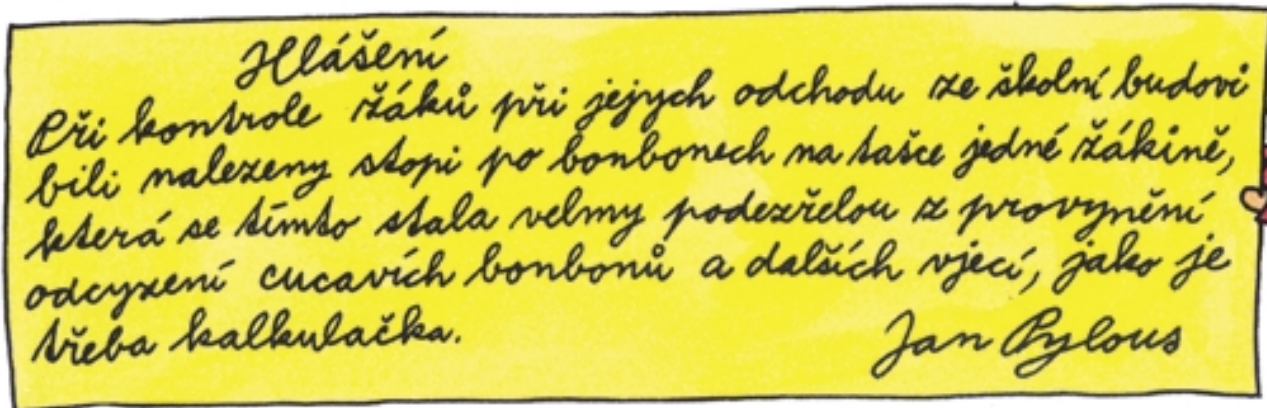 Hlášení
Při kontrole žáků při jejych odchodu ze školní budovi
bili nalezeny stopi po bonbonech na tašce jedné žákině,
která se tímto stala velmy podezřelou z provynění
odcyzení cucavích bonbonů a dalších vjecí, jako je
třeba kalkulačka.
Jan Pylous